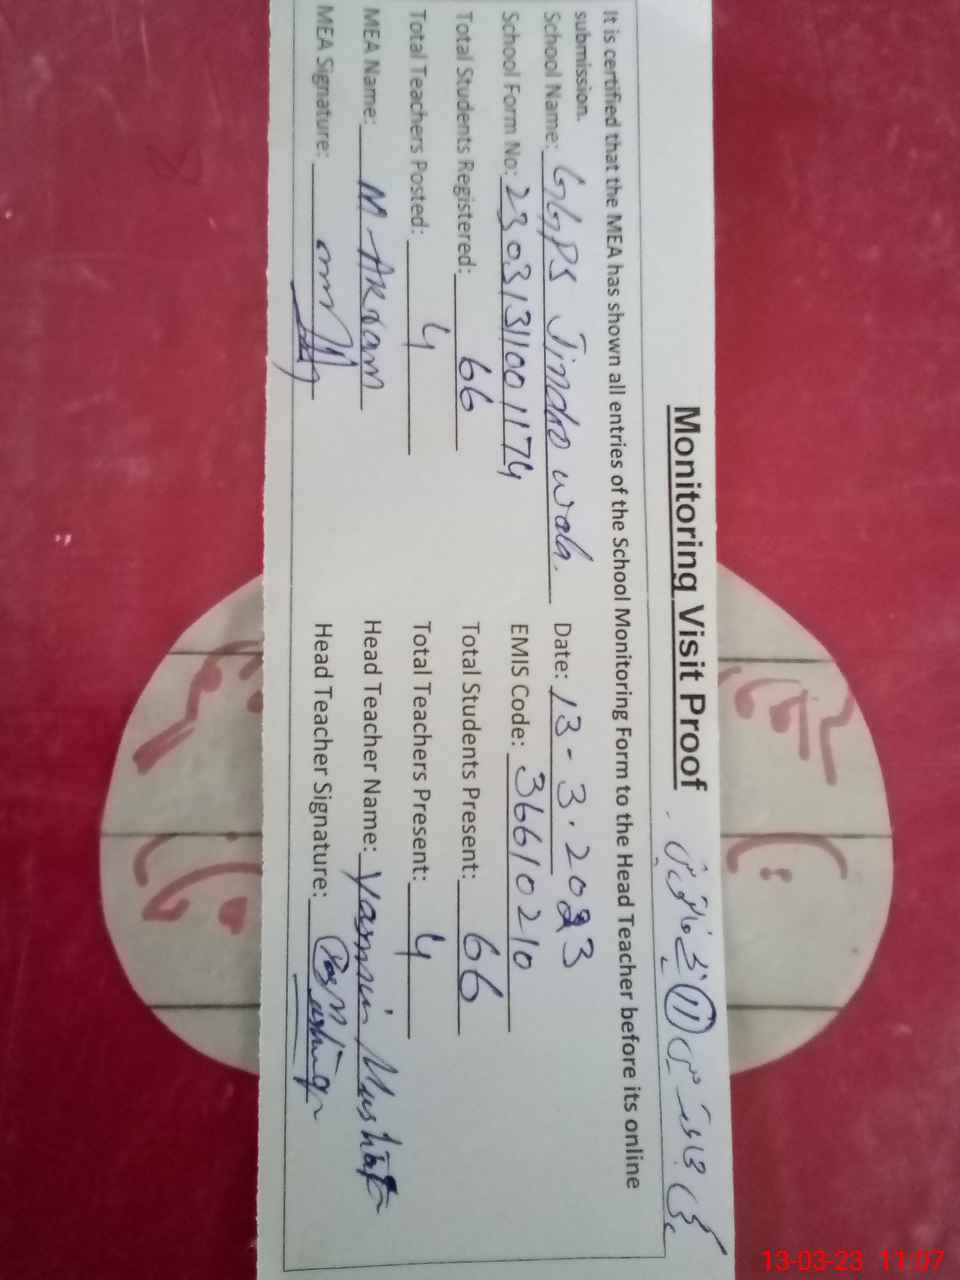 Monitoring Visit Proof
It is certified that the MEA has shown all entries of the School Monitoring Form to the Head Teacher before its online
submission.
School Name: GGPS Jindho wala. Date: 13-3.2023
School Form No: 2303131001174 EMIS Code: 36610210
Total Students Registered: 66 Total Students Present: 66
Total Teachers Posted: 4 Total Teachers Present: 4
MEA Name: M-Akram Head Teacher Name: Yasmin Mushtaq
MEA Signature: Head Teacher Signature:
13-03-23 11:07